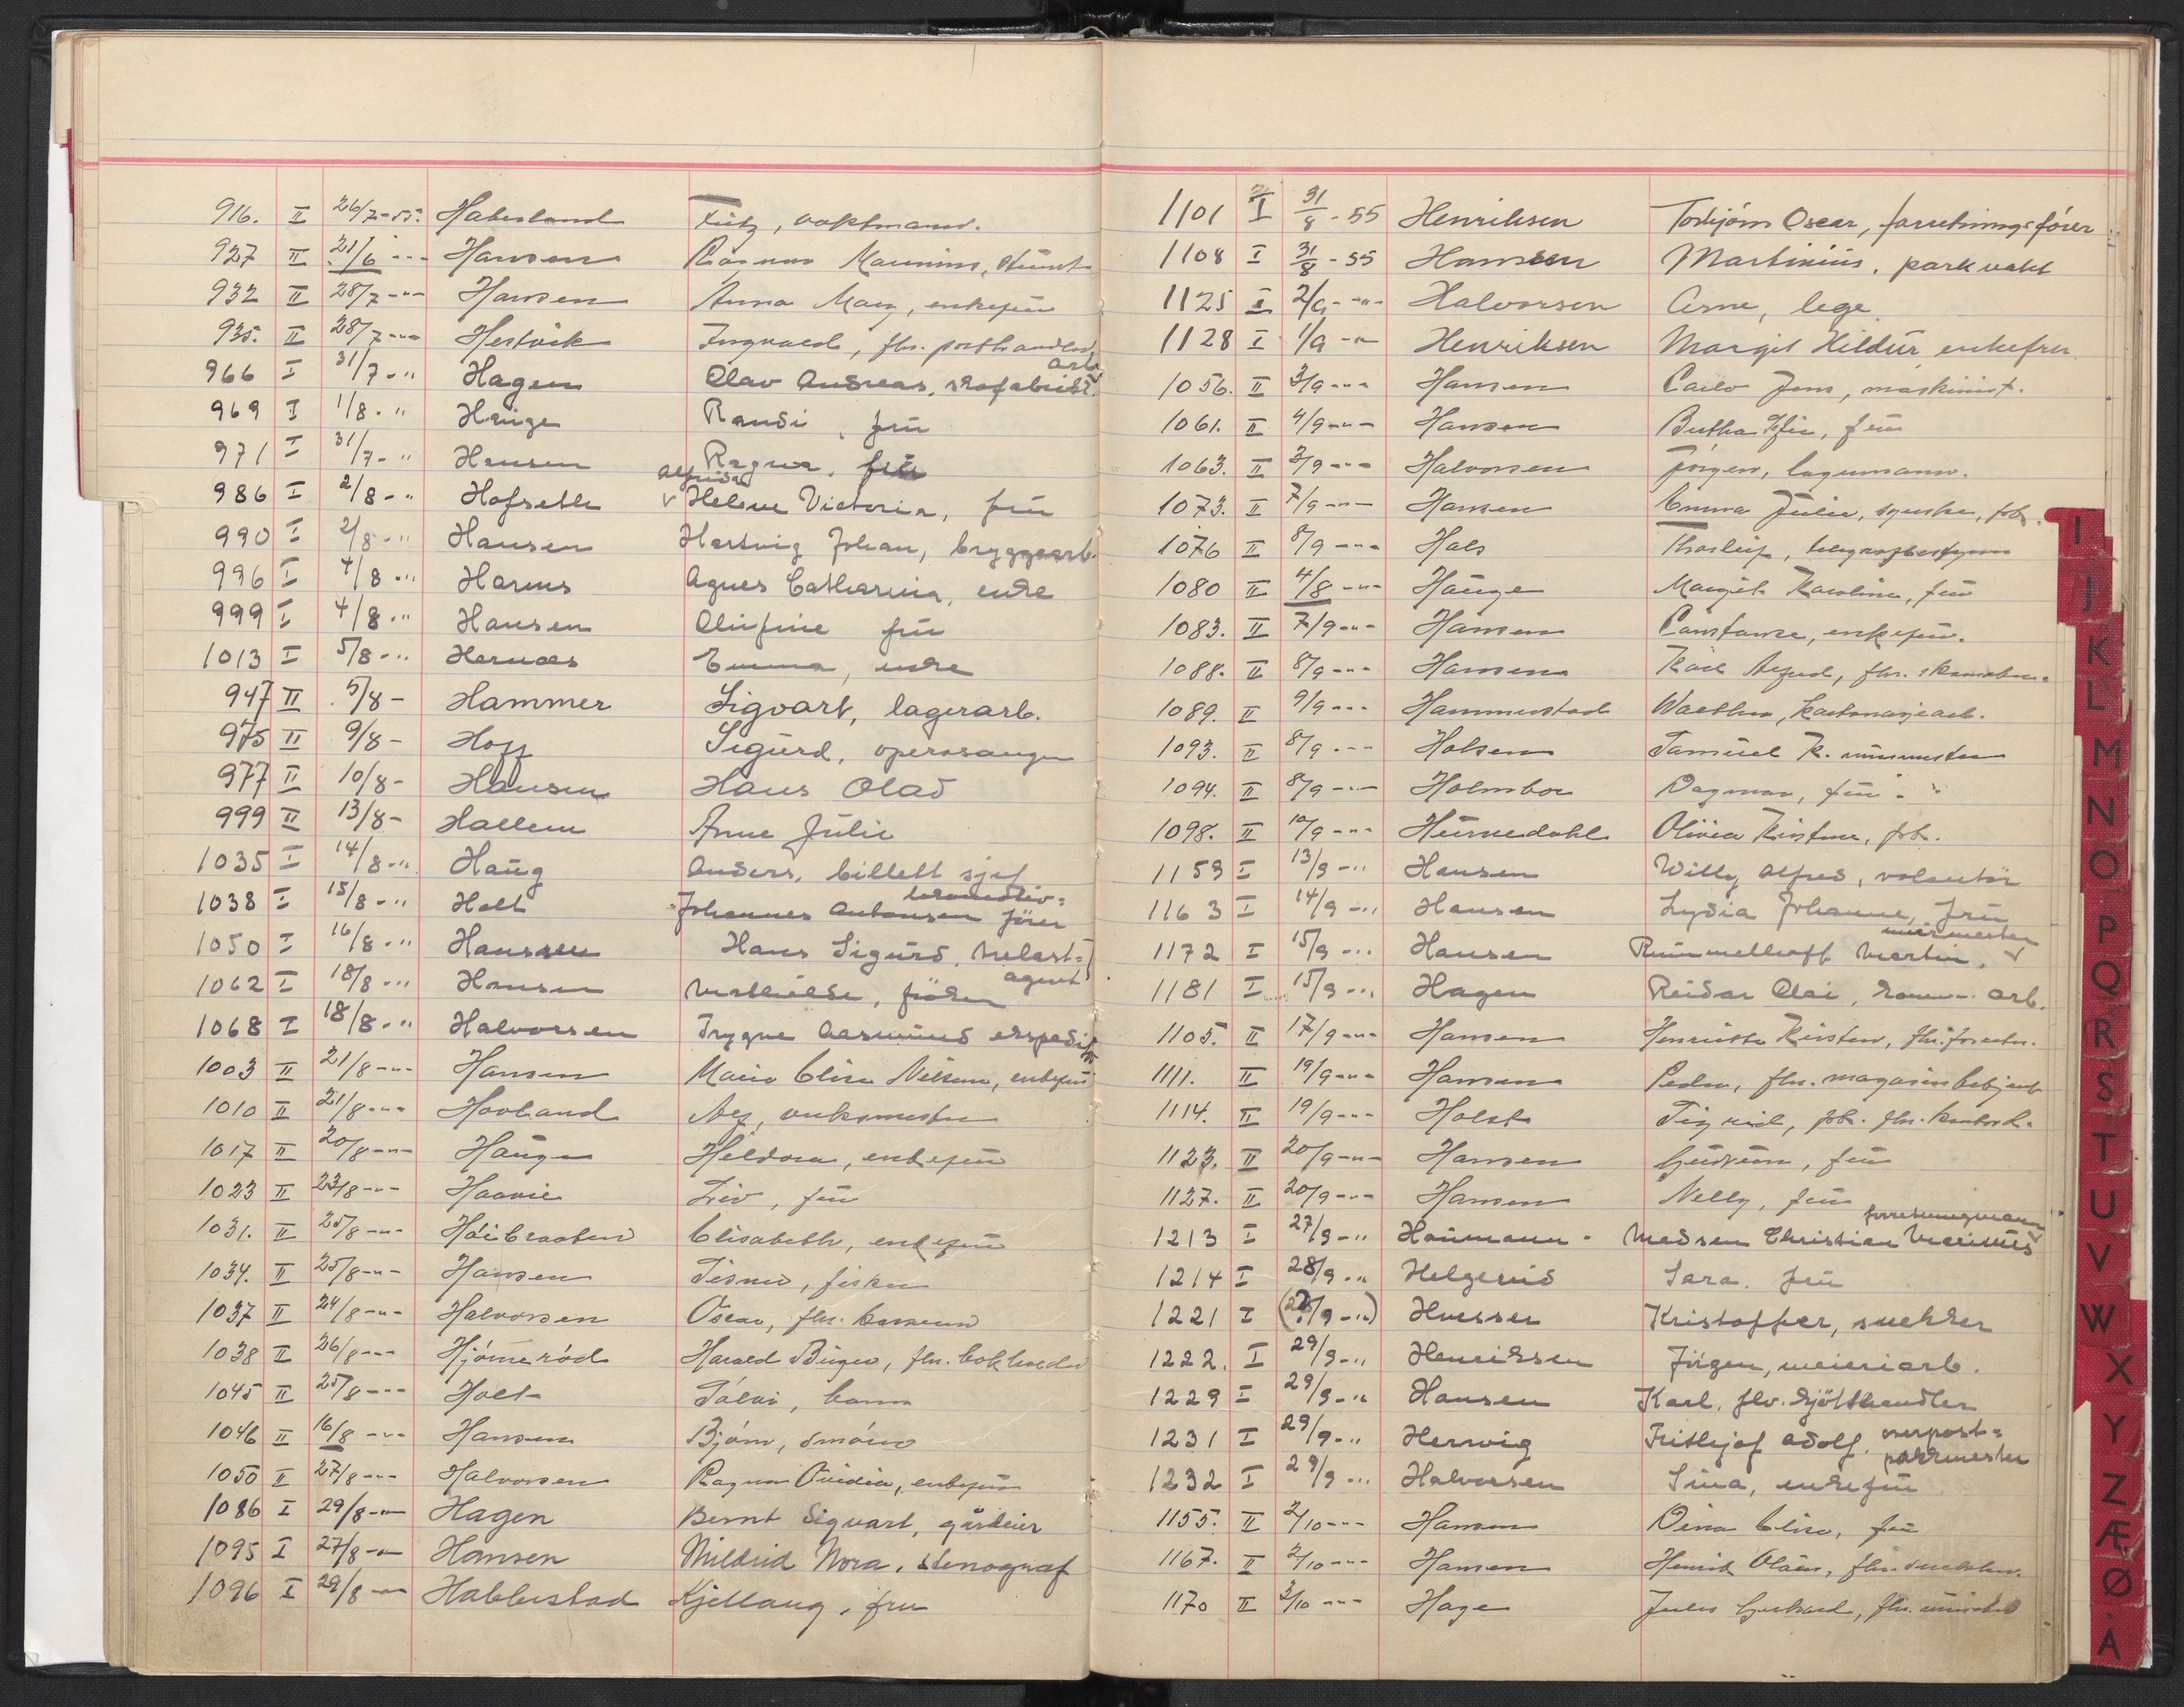 916. II 26/7-55. Haberland Fritz, vaktmann.
927 II 21/6 -"- Hansen Magnus
932 II 28/7 -"- Hansen Anna Mary, enkefru
935. II 28/7 -"- Hestvik Ingvald, fhv.
arb.
966 I 31/7 -" Hagen Olav Andreas, skofabrikk
969 I 1/8 -" Hauge Randi, fru
971 I 31/7 -" Hansen Ragna, fru
Alfrida
986 I 2/8 -" Hofseth v Helene Victoria, fru
990 I 2/8 -" Hansen Hartvig Johan, bryggearb.
996 I 4/8 -" Harms Agnes Catharina, enke
999 I 4/8 -" Hansen Olufine fru
1013 I 5/8 -" Hernæs Emma, enke
947 II 5/8 - Hammer Sigvart, lagerarb.
975 II 9/8 - Hoff Sigurd, operasanger
977 II 10/8 - Hansen Hans Olad
999 II 13/8 - Hallem Anne Julie
1035 I 14/8 -" Haug Anders, billettsjef
lokomotiv=
1038 I 15/8 -" Holt Johannes Antonsen fører
1050 I 16/8 -" Hanssen Hans Sigurd,
agent
1062 I 18/8 -" Hansen Mathilde, frøken
1068 I 18/8 -" Halvorsen Trygve Aasmund ekspeditør
1003 II 21/8 -"- Hansen Marie Elise Nelsine, enkefru
1010 II 21/8 -"- Hovland Alf, verksmester
1017 II 20/8 -"- Haugen Heldora, enkefru
1023 II 23/8 -"- Haavie Liv, fru
1031. II 25/8 -"- Høibraaten Elisabeth, enkefru
1034. II 25/8 -"- Hansen fisker
1037 II 24/8 -"- Halvorsen Oscar, fhv.
1038 II 26/8 -"- Hjørnerød Harald Birger, fhv. bokholder
1045 II 25/8 -"- Holt Sølvi, barn
1046 II 16/8 -"- Hansen Bjørn, smører
1050 II 27/8 -"- Halvorsen Ragna Ovidia, enkefru
1086 I 29/8 -"- Hagen Bernt Sigvart, gårdeier
1095 I 27/8 -"- Hansen Mildrid Nora, stenograf
1096 I 29/8 -"- Habberstad Kjellaug, fru
1101 I 31/8 - 55 Henriksen Torbjørn Oscar, forretningsfører
1108 I 31/8 - 55 Hansen Martinius, parkvakt
1125 I 2/9 -"- Halvorsen Arne, lege
1128 I 1/9 -"- Henriksen Margit Hildur enkefru
1056. II 3/9 -"- Hansen Carlo Jens, maskinist.
1061. II 4/9 -"- Hansen Bertha fru
1063. II 3/9 -"- Halvorsen Jørgen, lagermann.
1073. II 7/9 -"- Hansen Emma Julie, syerske, frk.
1076 II 8/9 -"- Hals Thorleif, telegrafbestyrer
1080 II 4/8 -"- Hauge Margit Karoline, fru
1083. II 7/9 -"- Hansen Constance, enkefru.
1088. II 8/9 -"- Hansen Karl Alfred, fhv.
1089. II 9/9 -"- Hammerstad Walther, kartonasjearb.
1093. II 8/9 -"- Holsen Samuel K. murmester
1094. II 8/9 -"- Holmboe Dagmar, fru
1098. II 10/9 -"- Hurnedahl Olivia Kirstine, frk.
1159 I 13/9 -" Hansen Willy Alfred, volontør
1163 I 14/9 -" Hansen Lydia Johanne, fru
murmester
1172 I 15/9 -" Hansen Rummelhoff Martin,
1181 I 15/9 -" Hagen Reidar Olai, komm. arb.
1105. II 17/9 -"- Hansen Henriette Kirsten, fhv.
1111. II 19/9 -"- Hansen Peder, fhv. magasinbetjent
1114. II 19/9 -"- Holst Sigrid, frk. fhv.
1123. II 20/9 -"- Hansen Gudrun, fru
1127. II 20/9 -"- Hansen Nelly, fru
forretningmann
1213 I 27/9 -" Haumann - Madsen Christian Marinus
1214 I 28/9 -" Helgerud Sara, fru
1221 I (28/9 -") Huser Kristoffer, snekker
1222. I 29/9 -" Henriksen Jørgen, meieriarb.
1229 I 29/9 -" Hansen Karl, fhv. kjøtthandler
1231 I 29/9 -" Herwig Frithjof Adolf, overpost=
pakkmester
1232 I 29/9 -" Halvorsen Sina, enkefru
1155. II 2/10 -"- Hansen Dina Elise, fru
1167. II 2/10 -"- Hansen Henrik Olaus, fhv.
1170 II 3/10 -"- Hage Julius Gerhard, fhv.
I
J
K
L
M
N
O
P
Q
R
S
T
U
V
W
X
Y
Z
Æ
Ø
Å